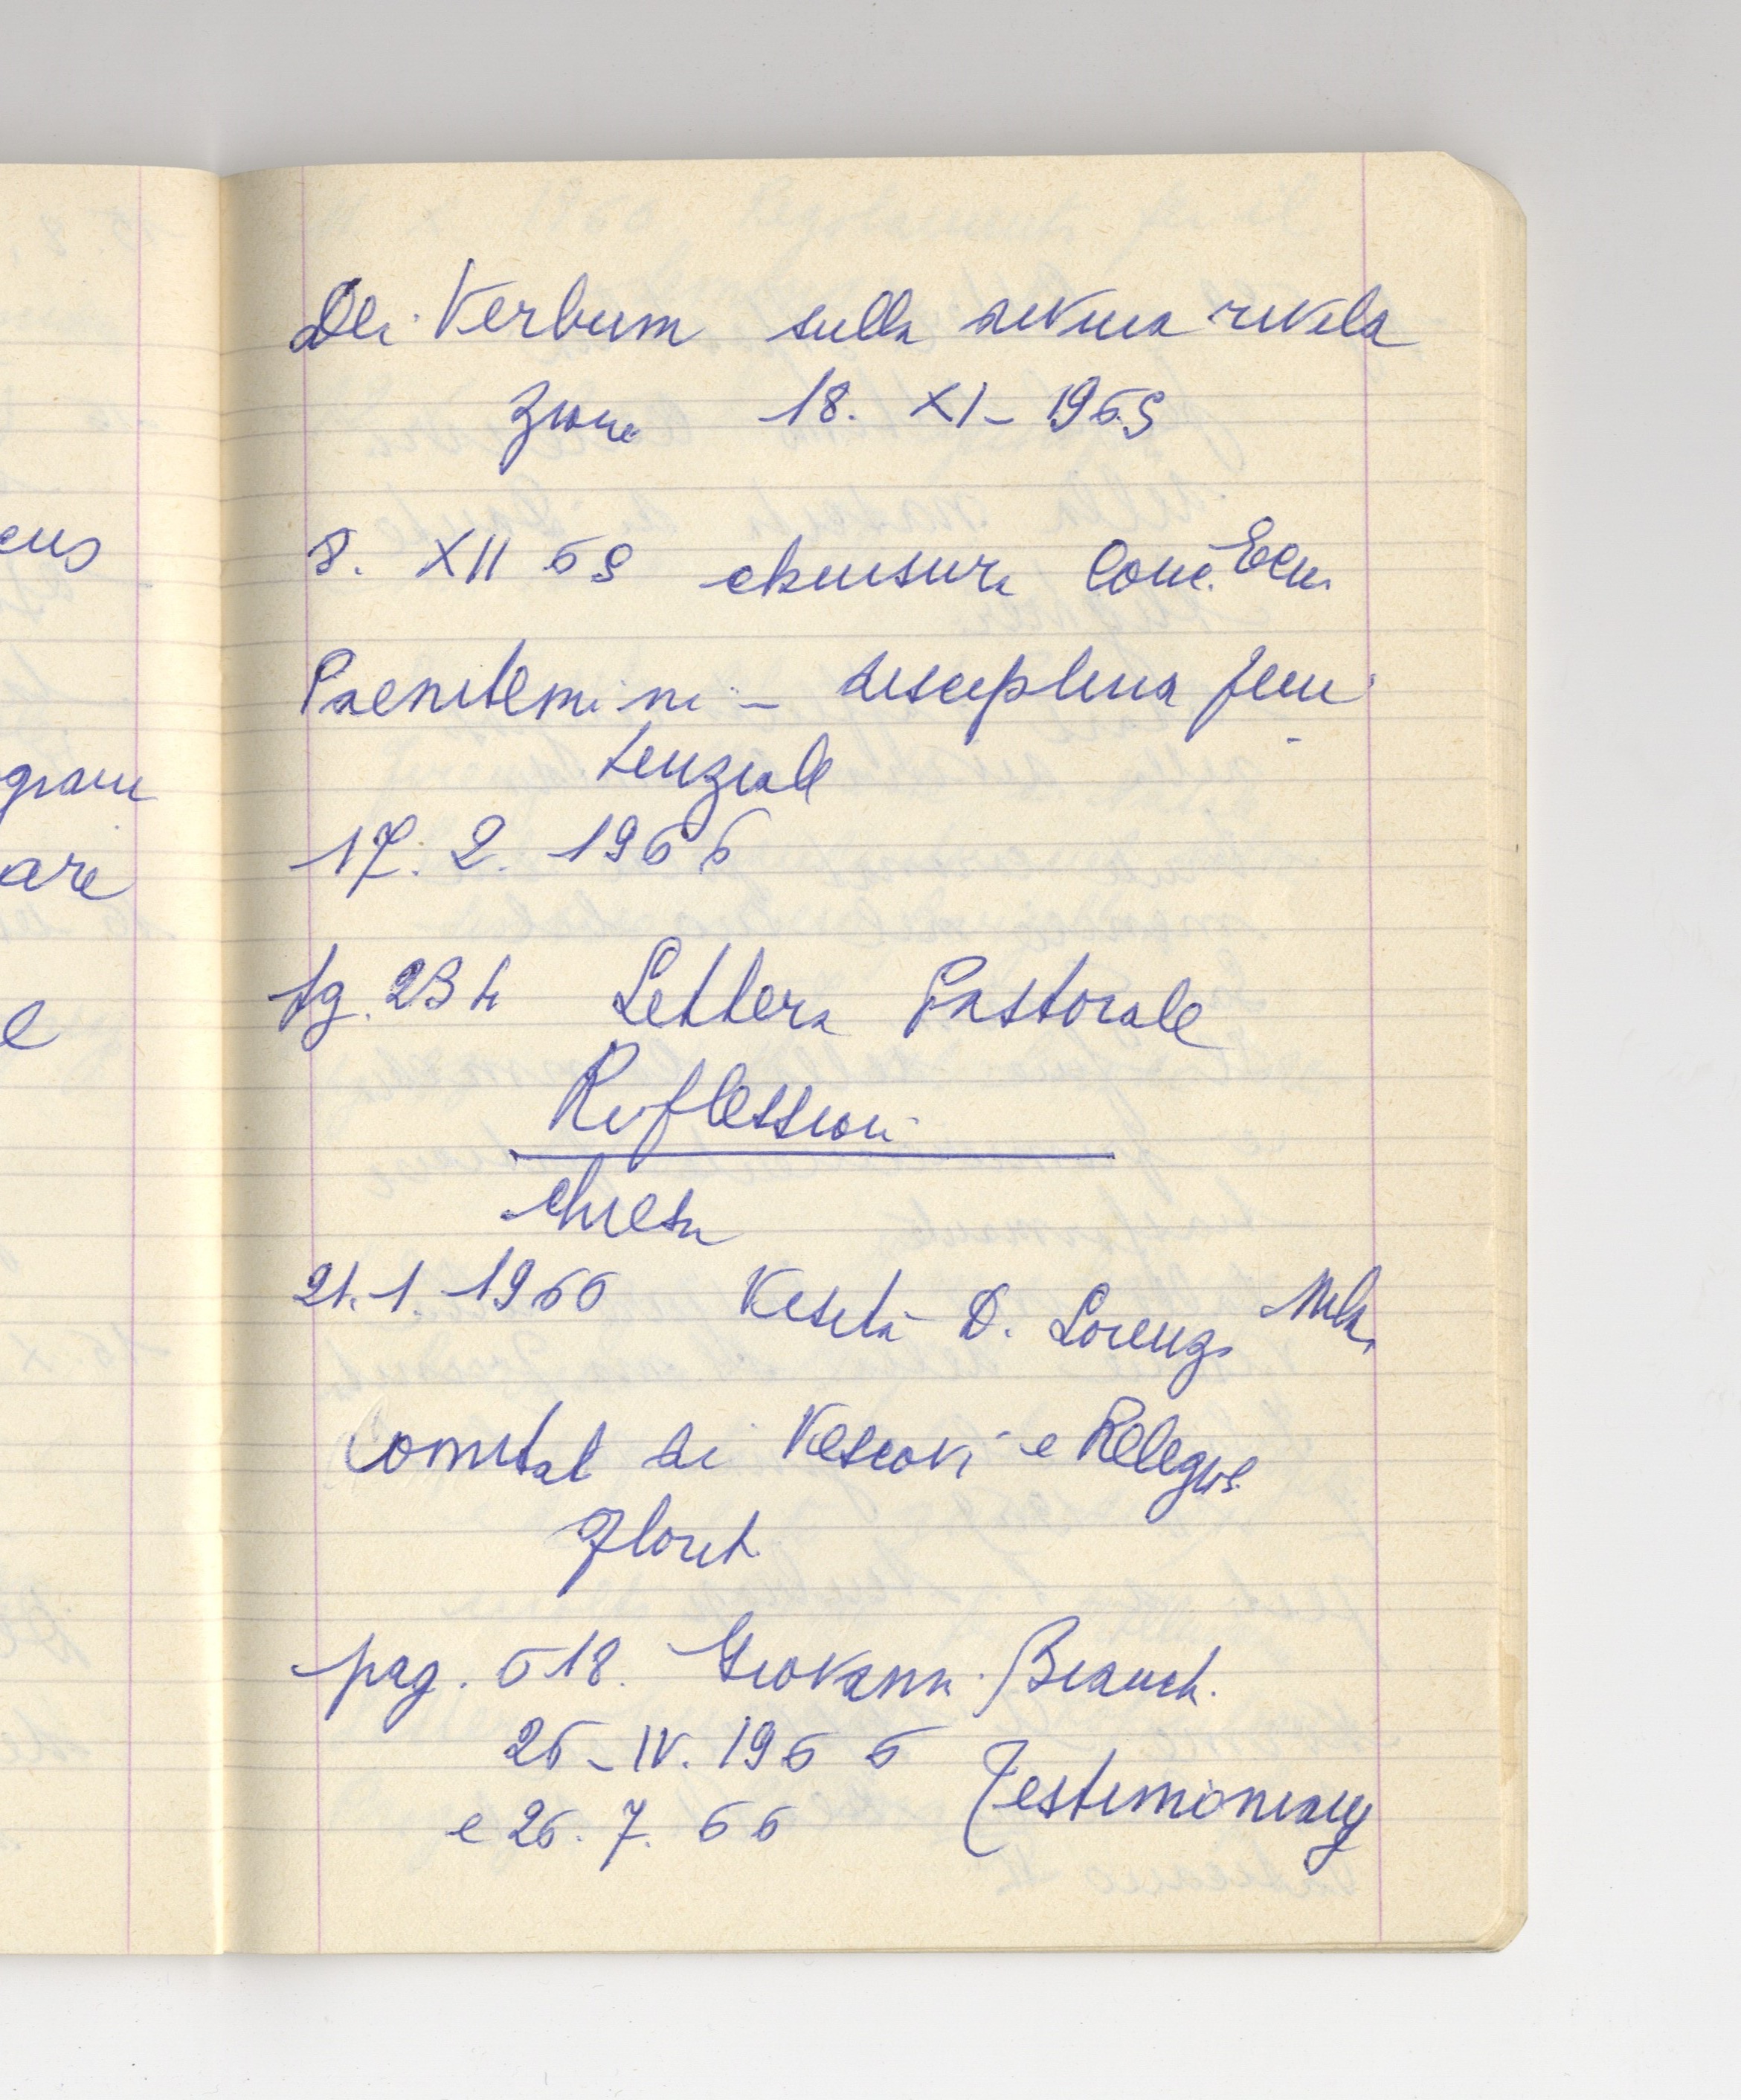 eus
gram
are
e
Dei Verbum sulla divina rivela
zione 18. XI - 1965
8. XII 65 chiusura Conc. Ecu.
Paenitemini - disciplina peni
tenziale
17. 2. 1966
pg. 234 Lettera Pastorale
Riflessioni
chiesa
21. 1. 1966 Visita D. Lorenzo Mila
Comitat di Vescovi e Religios.
Florit.
pag. 518. Giovanni Bianch.
26 - IV. 1966
e 26. 7. 66 Testimonianz